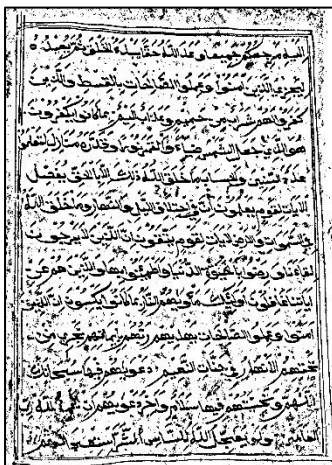 اليه مرجعكم جميعا وعد الله حقا انه يبدؤ الخلق ثم يعيده
ليجزي الذين آمنوا وعملوا الصالحات بالقسط والذين
كفروا لهم شراب من حميم وعذاب اليم بما كانوا يكفرون
هو الذي جعل الشمس ضياء والقمر نورا وقدره منازل لتعلموا
عدد السنين والحساب ما خلق الله ذلك الا بالحق يفصل
الآيات لقوم يعلمون ان في اختلاف الليل والنهار وما خلق الله
في السموات والارض لآيات لقوم يتقون ان الذين لا يرجون
لقاءنا ورضوا بالحيوة الدنيا واطمأنوا بها والذين هم عن
آياتنا غافلون اولئك مأويهم النار بما كانوا يكسبون ان الذين
آمنوا وعملوا الصالحات يهديهم ربهم بايمانهم تجري من
تحتهم الانهار في جنات النعيم دعويهم فيها سبحانك
اللهم وتحيتهم فيها سلام وآخر دعويهم ان الحمد لله رب
العالمين ولو يعجل الله للناس الشر استعجالهم